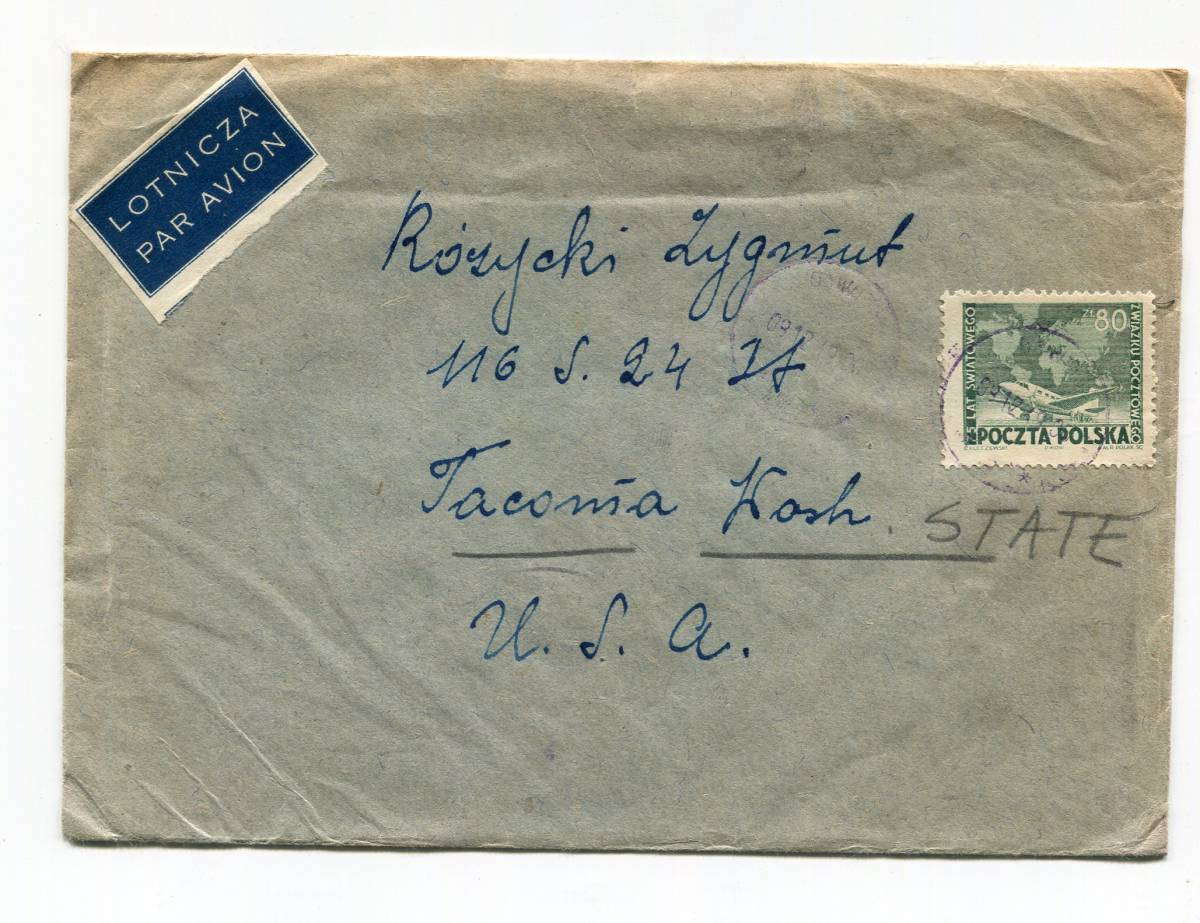 LOTNICZA
PAR AVION
Różycki Zygmut
116 S. 24 St
Tacoma Wash. STATE
U. S. A.
ZŁ 80
75 LAT ŚWIATOWEGO
ZWIĄZKU POCZTOWEGO
POCZTA POLSKA
09.12
09.12